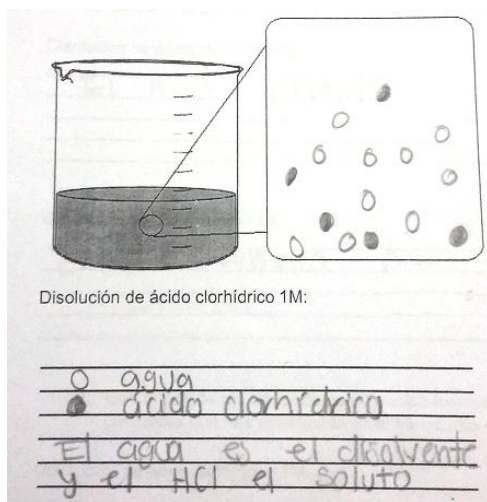 Disolución de ácido clorhídrico 1M:
agua
ácido clorhídrico
El agua es el disolvente
y el HCl el soluto